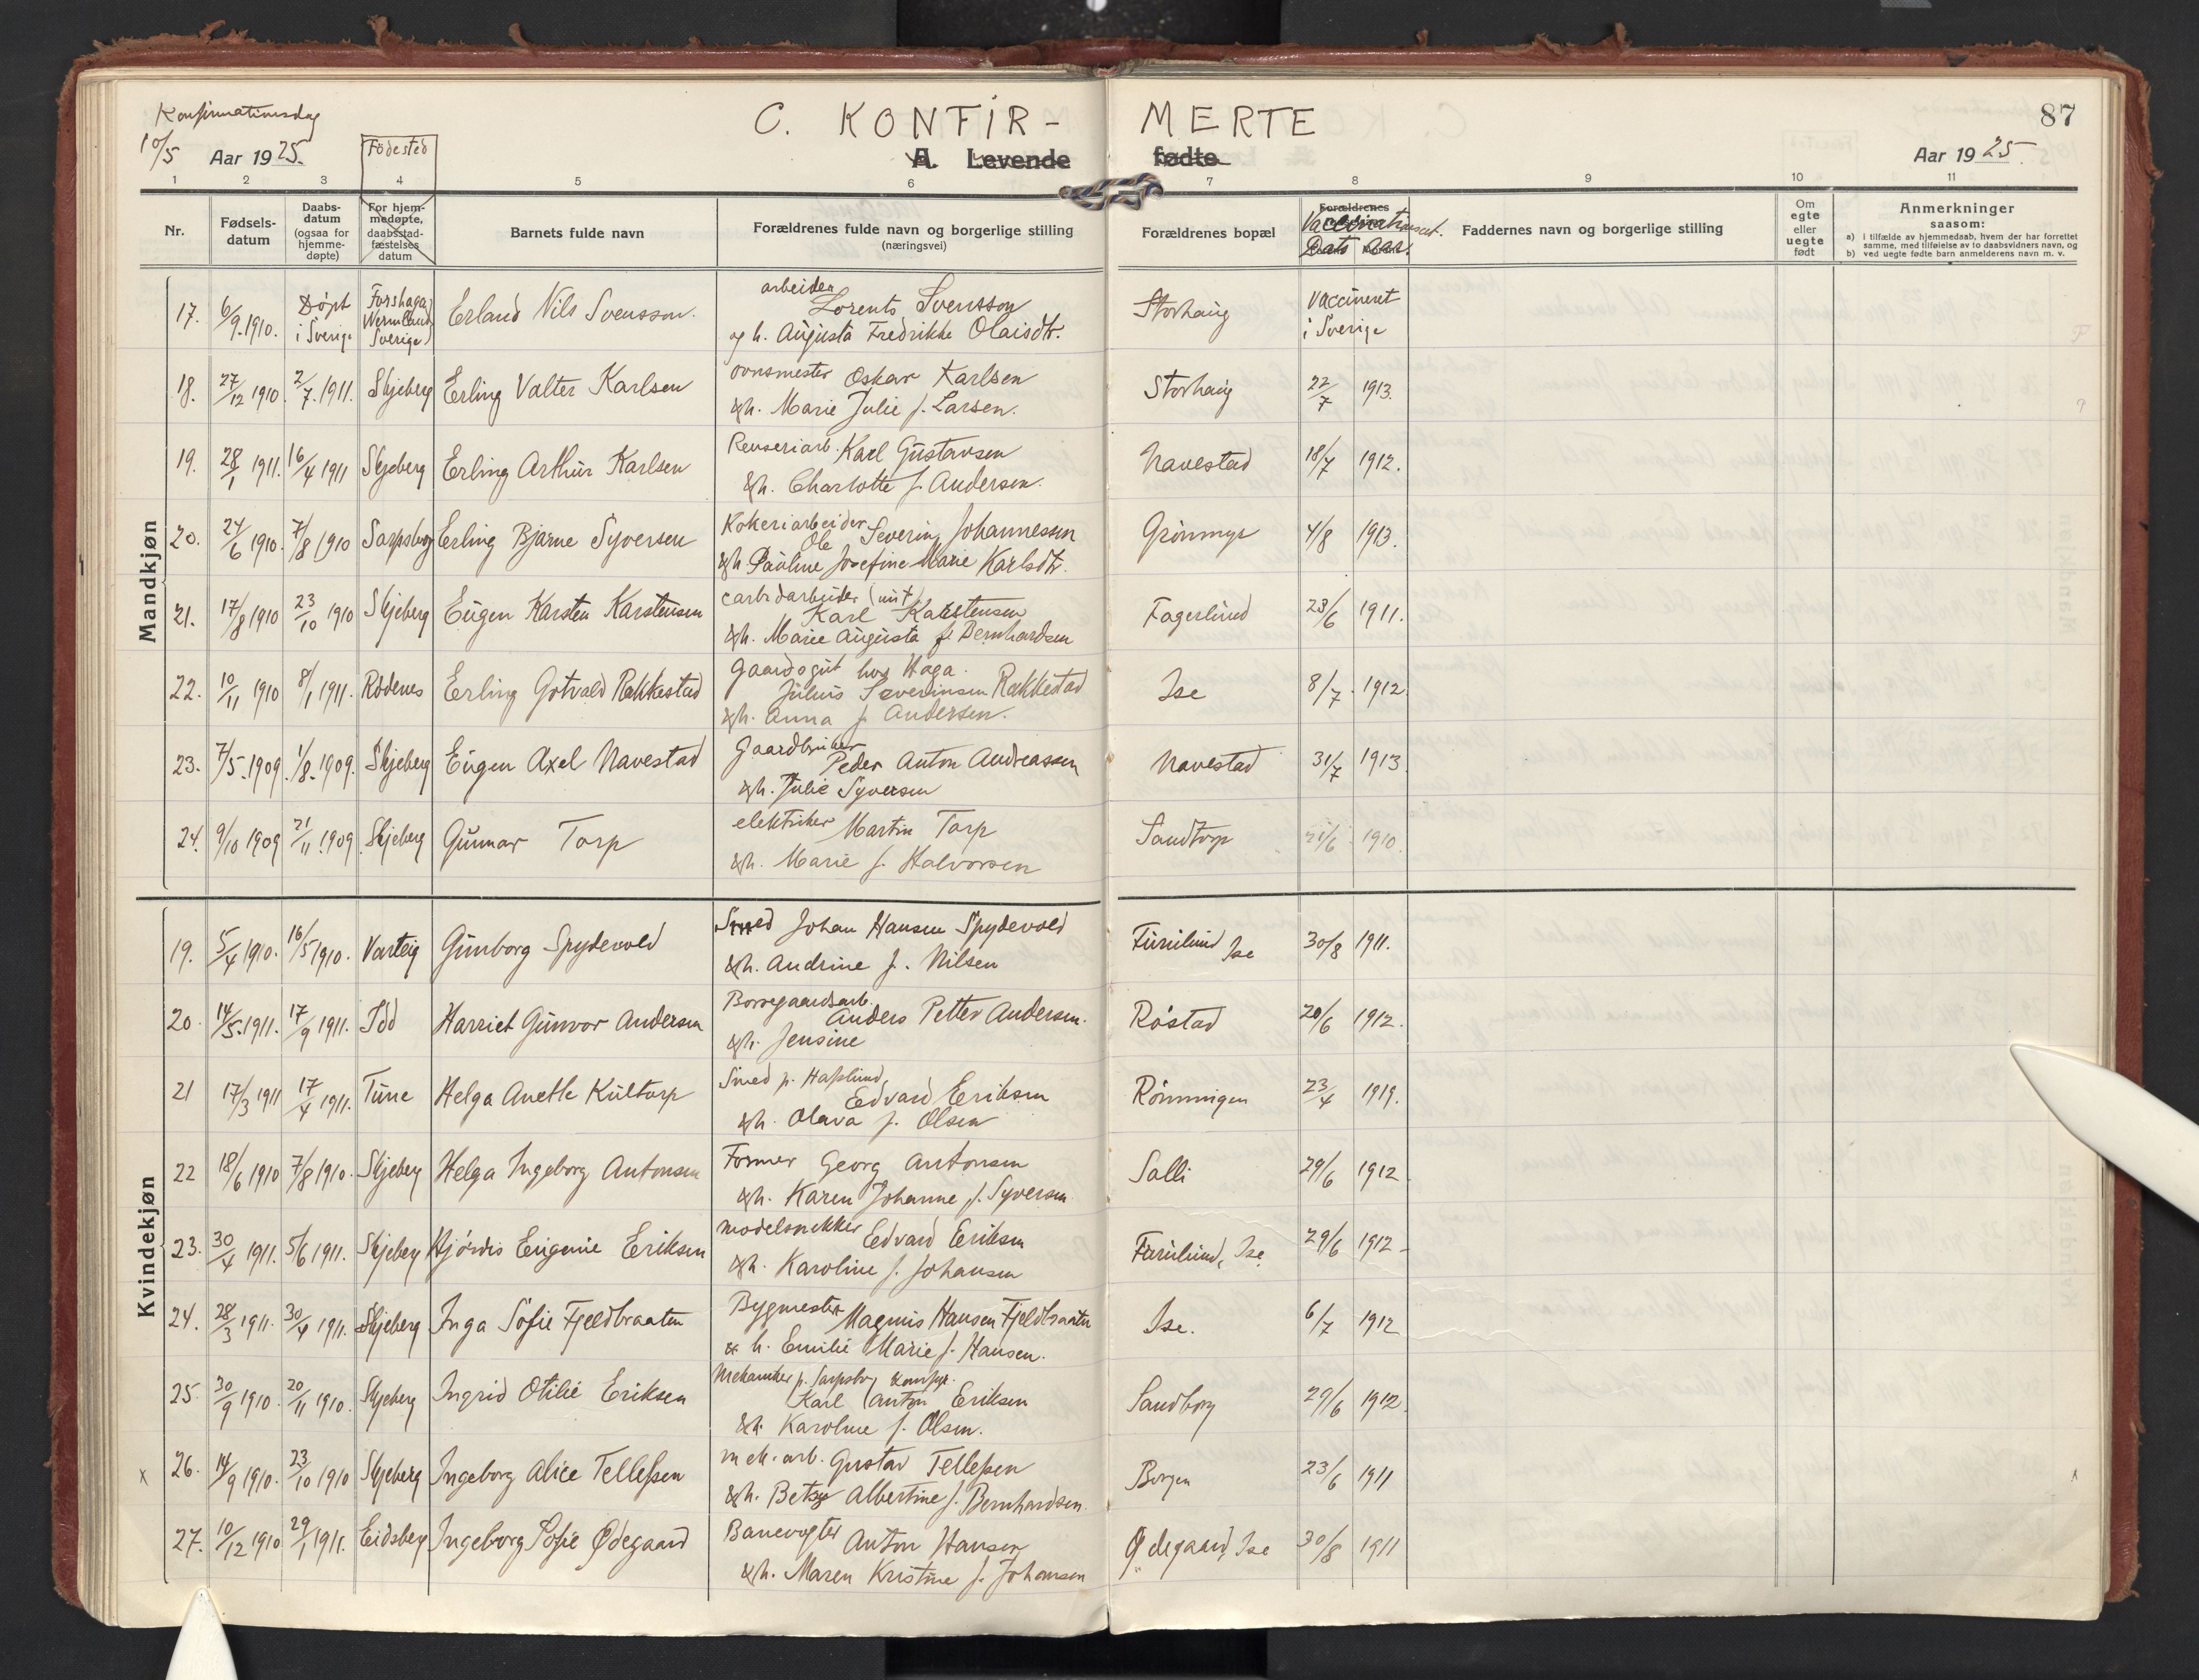 Konfirmationsdag
10/5 Aar 1925.
Fødested
C. KONFIR- MERTE
A. Levende fødte
87
Aar 1925.
1 2 3 4 5 6 7 8 9 10 11
Nr.
Fødsels-
datum
Daabs-
datum
(ogsaa for
hjemme-
døpte)
For hjem-
medøpte,
daabsstad-
fæstelses
datum
Barnets fulde navn
Forældrenes fulde navn og borgerlige stilling
(næringsvei)
Forældrenes bopæl
Forældrenes
Dato Aar.
Faddernes navn og borgerlige stilling
Om
egte
eller
uegte
født
Anmerkninger
saasom:
a) i tilfælde av hjemmedaab, hvem der har forrettet
samme, med tilføielse av to daabsvidners navn, og
b) ved uegte fødte barn anmelderens navn m. v.
Mandkjøn
17. 6/9.1910. Døpt i Sverige Forshaga Wermland Sverige Erland Nils Svensson. arbeider Lorents Svensson Storhaug Vaccineret i Sverige
og h. Augusta Fredrikke Olaisdtr.
18. 27/12 1910. 2/7.1911. Skjeberg Erling Valter Karlsen ovnsmester Oskar Karlsen Storhaug 22/7 1913.
&h. Marie Julie f. Larsen.
19. 28/1 1911. 16/4 1911 Skjeberg Erling Arthur Karlsen Renseriarb. Karl Gustavsen Navestad 18/7 1912.
&h. Charlotte f. Andersen.
20. 24/6 1910. 7/8 1910 Sarpsborg Erling Bjarne Syversen Kokeriarbeider Ole Severin Johannessen Grønmyr 4/8 1913.
&h. Pauline Josefine Marie Karlsdtr.
21. 17/8 1910 23/10 1910 Skjeberg Eugen Karsten Karstensen carbidarbeider Karl Karstensen Fagerlund 23/6 1911.
&h. Marie Augusta f. Bernhardsen
22. 10/11 1910 8/1 1911. Rødenes Erling Gotvald Rakkestad Gaardsgut hos Haga.
Julius Severinsen Rakkestad Ise 8/7. 1912.
&h. Anna f. Andersen.
23. 7/5.1909. 1/8.1909. Skjeberg Eugen Axel Navestad Gaardbruker Peder Anton Andreassen Navestad 31/7 1913.
&h. Julie Syversen
24. 9/10 1909 21/11.1909 Skjeberg Gunnar Torp elektriker Martin Torp Sandtorp 21/6 1910.
&h. Marie f. Halvorsen
Kvindekjøn
19. 5/4 1910. 16/5 1910. Varteig Gunborg Spydevold Smed Johan Hansen Spydevold Furulund Ise 30/8 1911.
&h. Andrine f. Nilsen
20. 14/5.1911. 17/9 1911. Idd Harriet Gunvor Andersen Borregaardsarb. Anders Petter Andersen. Røstad 20/6 1912.
&h. Jensine
21 17/3 1911 17/4 1911. Tune Helga Anette Kultorp Smed p. Hafslund Edvard Eriksen Rønningen 23/4 1919.
&h. Olava f. Olsen
22 18/6 1910 7/8 1910. Skjeberg Helga Ingeborg Antonsen Former Georg Antonsen Salli 29/6 1912
&h. Karen Johanne f. Syversen
23. 30/4 1911. 5/6 1911. Skjeberg Hjørdis Eugenie Eriksen modelsnekker Edvard Eriksen Furulund, Ise 29/6 1912
&h. Karoline f. Johansen
24. 28/3 1911. 30/4 1911. Skjeberg Inga Sofie Fjeldbraaten Bygmester Magnus Hansen Fjeldbraaten Ise. 6/7 1912
& h. Emilie Marie f. Hansen.
25. 30/9 1910. 20/11 1910. Skjeberg Ingrid Otilie Eriksen Mekaniker p. Sarpsborg
Karl Anton Eriksen Sandborg 29/6 1912.
&h. Karoline f. Olsen.
x 26. 14/9 1910. 23/10 1910 Skjeberg Ingeborg Alice Tellefsen mek. arb. Gustav Tellefsen Borgen 23/6 1911 x
&h. Betsy Albertine f. Bernhardsen.
27. 10/12 1910 29/1 1911. Eidsberg Ingeborg Sofie Ødegaard Banevogter Anton Hansen Ødegaard, Ise 30/8 1911
&h. Maren Kristine f. Johansen